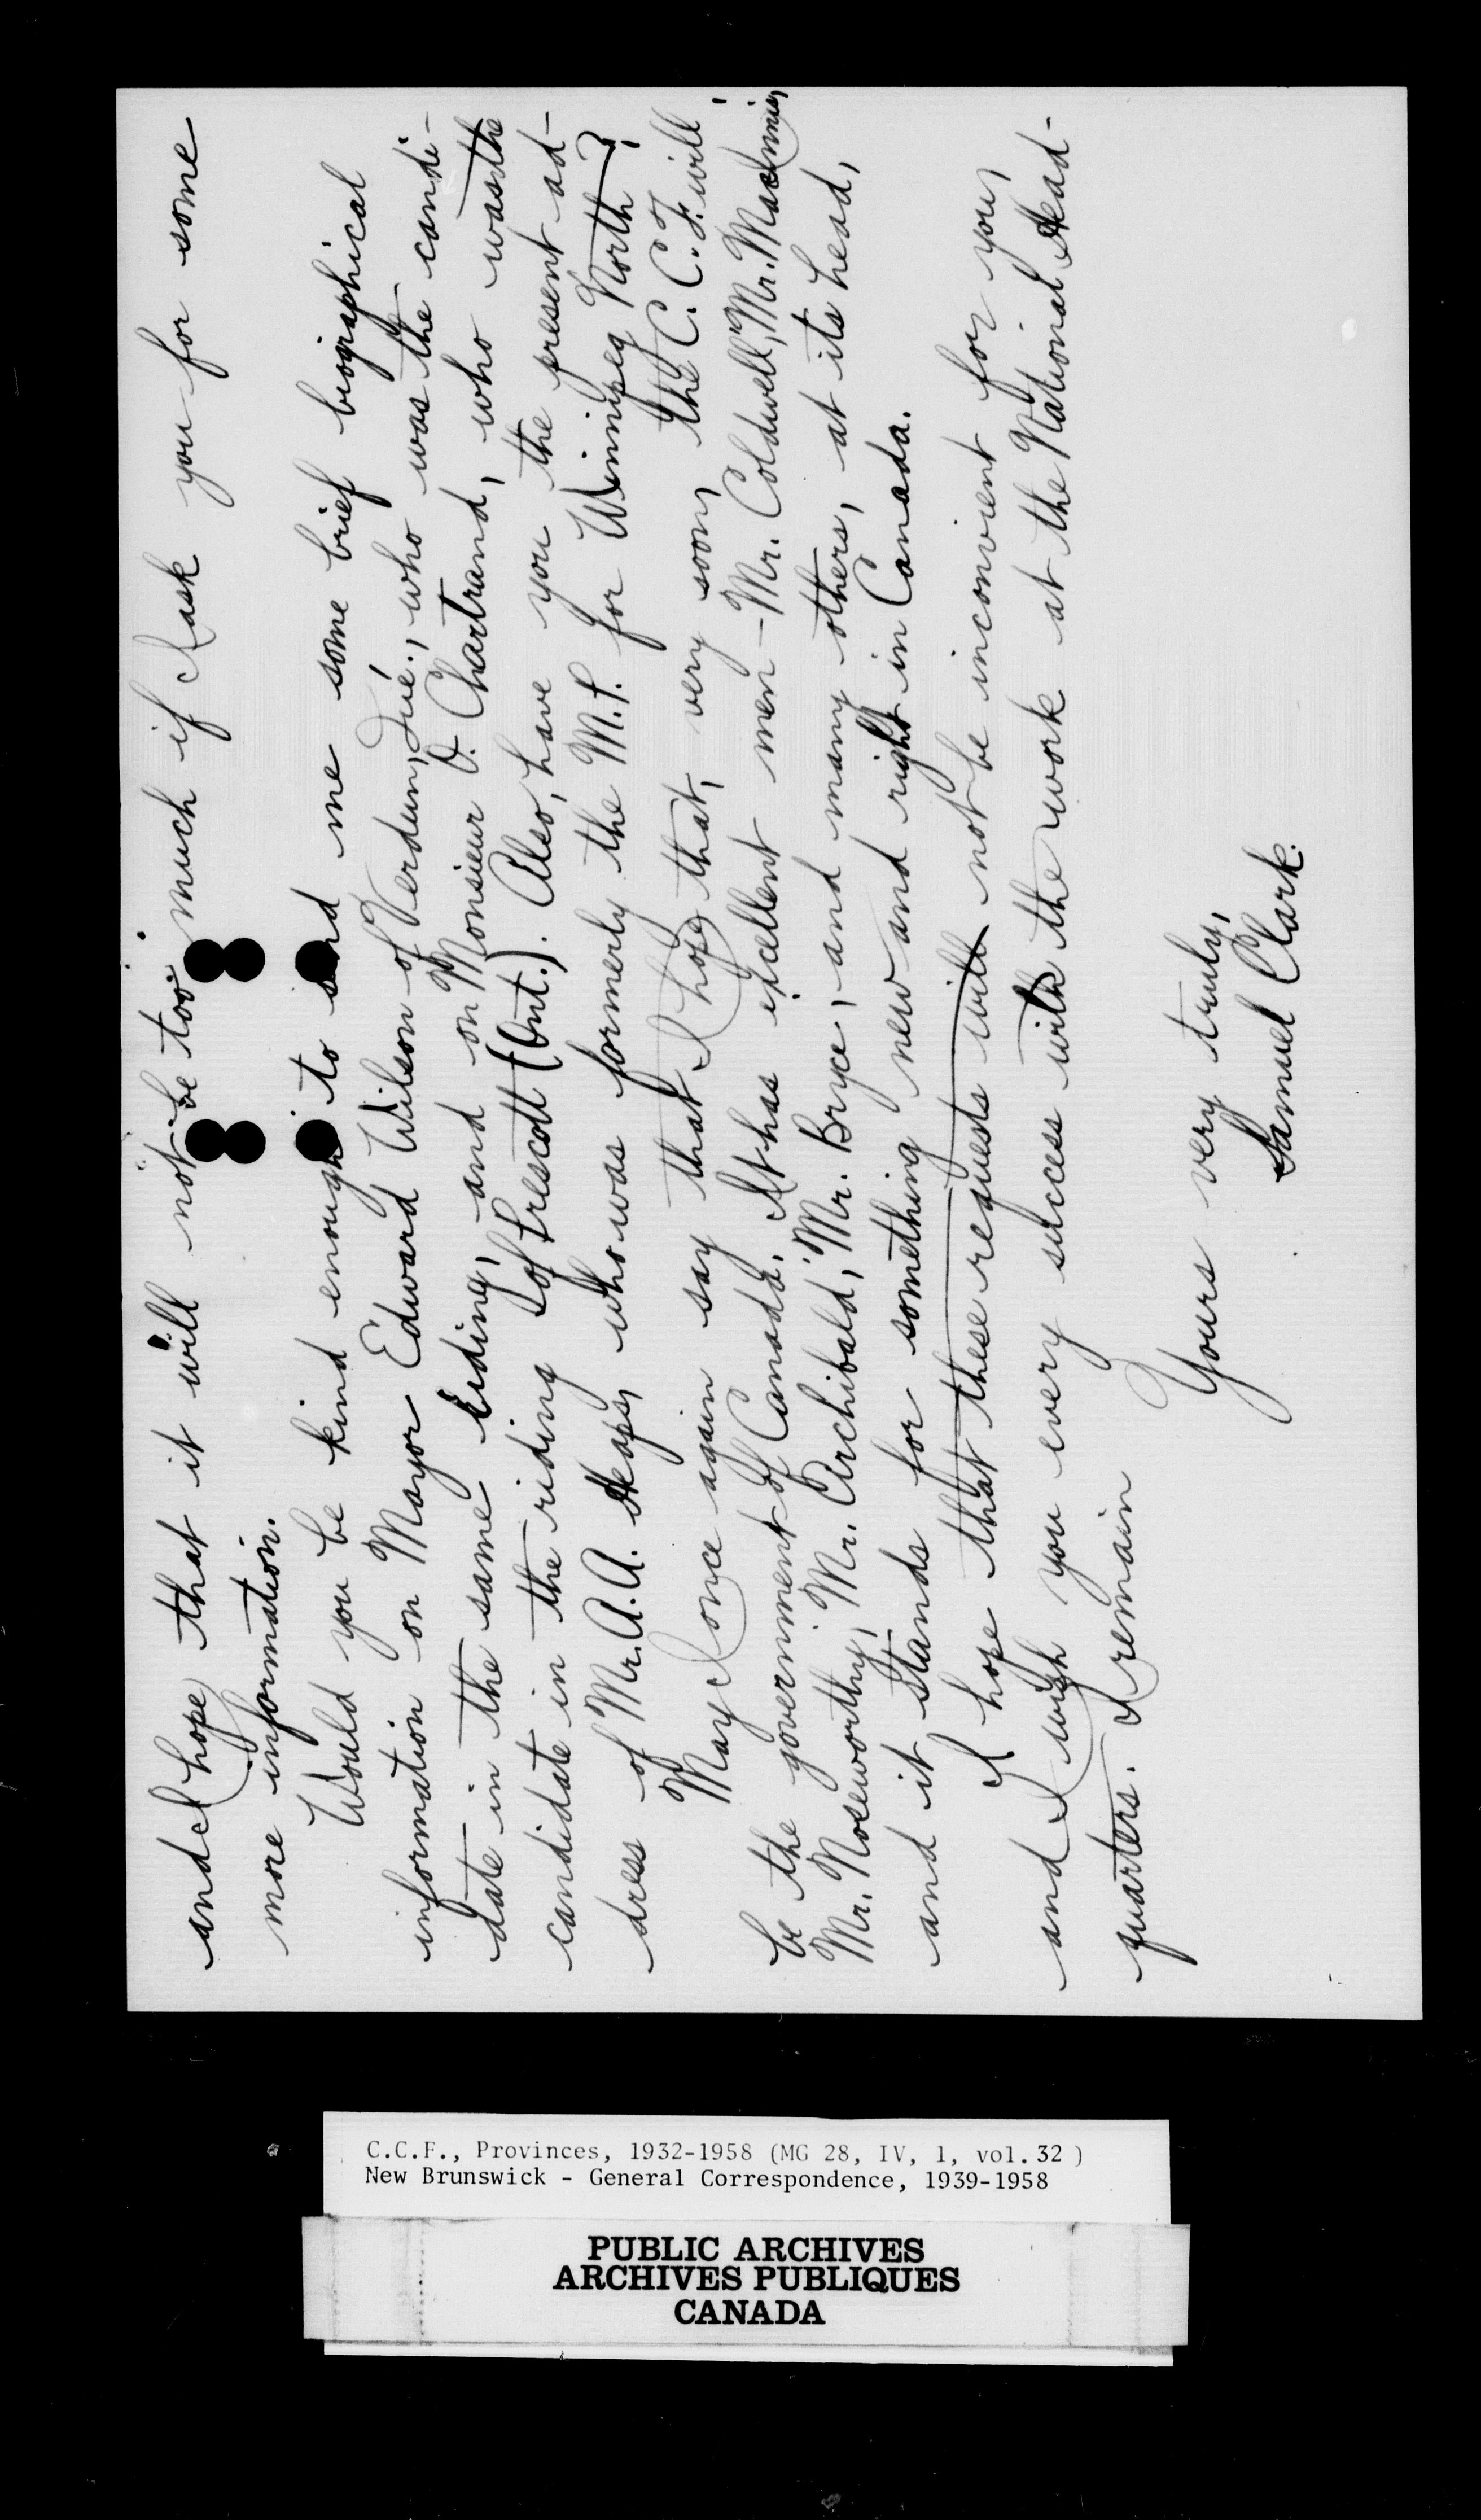 and I hope that it will not be too much if I ask you for some
more information.
Would you be kind enough to send me some brief biographical
information on Mayor Edward Wilson of Verdun, Qué., who was the candi-
date in the same riding, and on Monsieur O. Chartrand, who was the
candidate in the riding of Prescott (Ont.). Also, have you the present ad-
dress of Mr. A.A. Heaps, who was formerly the M.P. for Winnipeg North?
May I once again say that I hope that, very soon, the C.C.F. will
be the government of Canada. It has excellent men - Mr. Coldwell, Mr. MacInnis,
Mr. Noseworthy, Mr. Archibald, Mr. Bryce, and many others, at its head,
and it stands for something new and right in Canada.
I hope that these requests will not be inconvient for you,
and I wish you every success with the work at the National Head-
quarters. I remain
Yours very truly,
Samuel Clark.
C.C.F., Provinces, 1932-1958 (MG 28, IV, 1, vol. 32 )
New Brunswick - General Correspondence, 1939-1958
PUBLIC ARCHIVES
ARCHIVES PUBLIQUES
CANADA